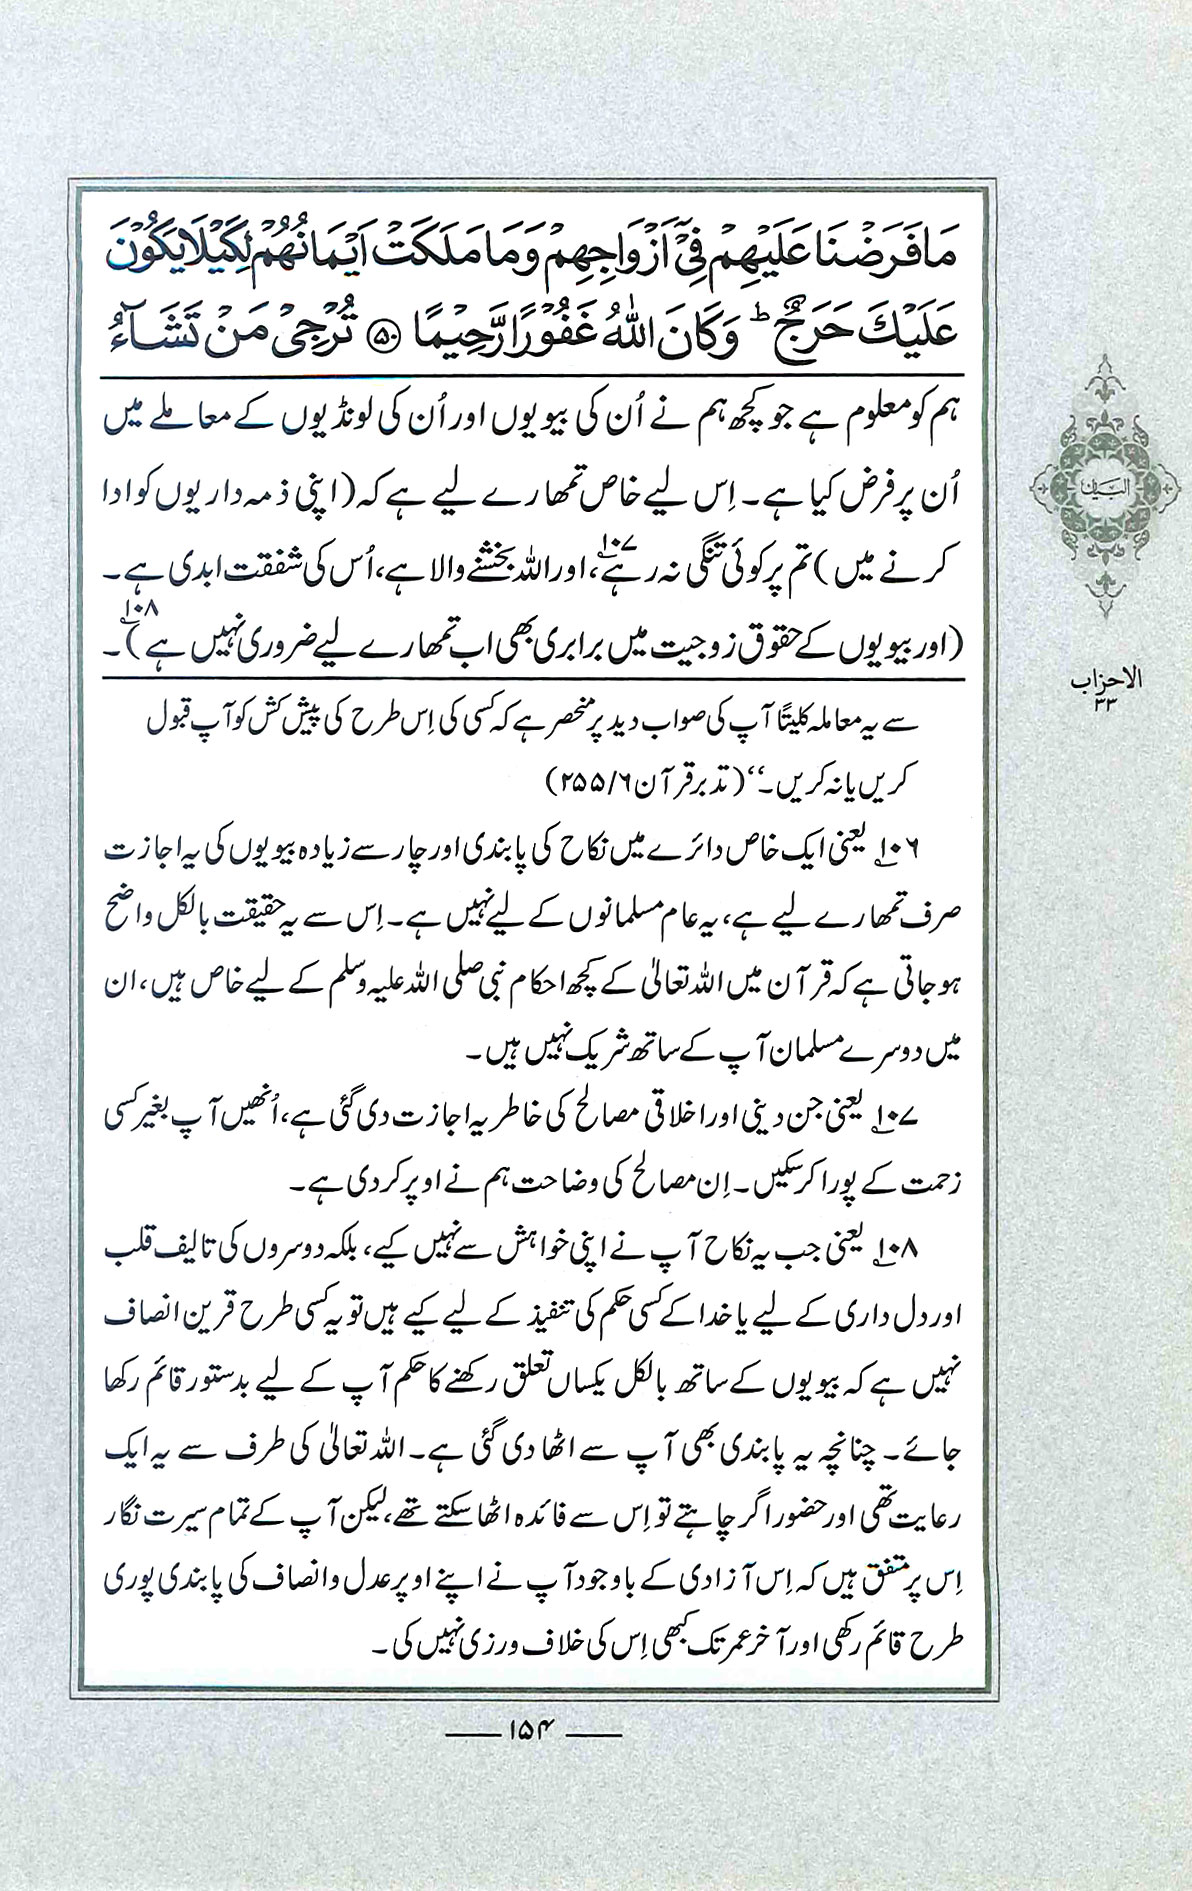 مَا فَرَضْنَا عَلَيْهِمْ فِيْٓ اَزْوَاجِهِمْ وَمَا مَلَكَتْ اَيْمَانُهُمْ لِكَيْلَا يَكُوْنَ
عَلَيْكَ حَرَجٌ ؕ وَكَانَ اللّٰهُ غَفُوْرًا رَّحِيْمًا ﴿۵۰﴾ تُرْجِيْ مَنْ تَشَآءُ
ہم کو معلوم ہے جو کچھ ہم نے اُن کی بیویوں اور اُن کی لونڈیوں کے معاملے میں
اُن پر فرض کیا ہے۔ اِس لیے خاص تمھارے لیے ہے کہ (اپنی ذمہ داریوں کو ادا
کرنے میں) تم پر کوئی تنگی نہ رہے،۱۰۷ اور اللہ بخشنے والا ہے، اُس کی شفقت ابدی ہے۔
(اور بیویوں کے حقوق زوجیت میں برابری بھی اب تمھارے لیے ضروری نہیں ہے)۱۰۸۔
سے یہ معاملہ کلیتًا آپ کی صواب دید پر منحصر ہے کہ کسی کی اِس طرح کی پیش کش کو آپ قبول
کریں یا نہ کریں۔‘‘ (تدبر قرآن ۶/ ۲۵۵)
۱۰۶ یعنی ایک خاص دائرے میں نکاح کی پابندی اور چار سے زیادہ بیویوں کی یہ اجازت
صرف تمھارے لیے ہے، یہ عام مسلمانوں کے لیے نہیں ہے۔ اِس سے یہ حقیقت بالکل واضح
ہو جاتی ہے کہ قرآن میں اللہ تعالیٰ کے کچھ احکام نبی صلی اللہ علیہ وسلم کے لیے خاص ہیں، ان
میں دوسرے مسلمان آپ کے ساتھ شریک نہیں ہیں۔
۱۰۷ یعنی جن دینی اور اخلاقی مصالح کی خاطر یہ اجازت دی گئی ہے، اُنھیں آپ بغیر کسی
زحمت کے پورا کر سکیں۔ اِن مصالح کی وضاحت ہم نے اوپر کر دی ہے۔
۱۰۸ یعنی جب یہ نکاح آپ نے اپنی خواہش سے نہیں کیے، بلکہ دوسروں کی تالیف قلب
اور دل داری کے لیے یا خدا کے کسی حکم کی تنفیذ کے لیے کیے ہیں تو یہ کسی طرح قرین انصاف
نہیں ہے کہ بیویوں کے ساتھ بالکل یکساں تعلق رکھنے کا حکم آپ کے لیے بدستور قائم رکھا
جائے۔ چنانچہ یہ پابندی بھی آپ سے اٹھا دی گئی ہے۔ اللہ تعالیٰ کی طرف سے یہ ایک
رعایت تھی اور حضور اگر چاہتے تو اِس سے فائدہ اٹھا سکتے تھے، لیکن آپ کے تمام سیرت نگار
اِس پر متفق ہیں کہ اِس آزادی کے باوجود آپ نے اپنے اوپر عدل و انصاف کی پابندی پوری
طرح قائم رکھی اور آخر عمر تک کبھی اِس کی خلاف ورزی نہیں کی۔
البیان
الاحزاب
۳۳
۱۵۴